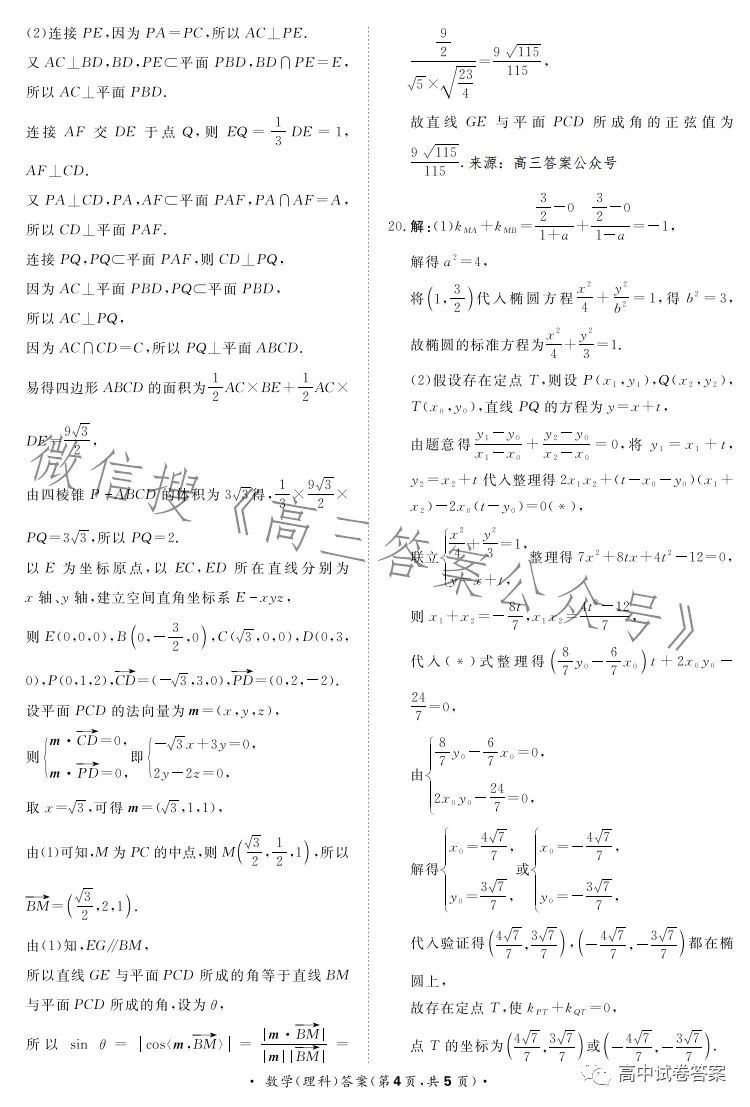 (2)连接 PE,因为 PA=PC,所以 AC⊥PE.
又 AC⊥BD,BD,PE⊂平面 PBD,BD∩PE=E,
所以 AC⊥平面 PBD.
连接 AF 交 DE 于点 Q,则 EQ = 1/3 DE = 1,
AF⊥CD.
又 PA⊥CD,PA,AF⊂平面 PAF,PA∩AF=A,
所以 CD⊥平面 PAF.
连接 PQ,PQ⊂平面 PAF,则 CD⊥PQ,
因为 AC⊥平面 PBD,PQ⊂平面 PBD,
所以 AC⊥PQ,
因为 AC∩CD=C,所以 PQ⊥平面 ABCD.
易得四边形 ABCD 的面积为 1/2 AC×BE+ 1/2 AC×
DE= 9√3/2,
由四棱锥 P-ABCD 的体积为 3√3得, 1/3 × 9√3/2 ×
PQ=3√3,所以 PQ=2.
以 E 为坐标原点,以 EC,ED 所在直线分别为
x 轴、y 轴,建立空间直角坐标系 E-xyz,
则 E(0,0,0),B(0,-3/2,0),C(√3,0,0),D(0,3,
0),P(0,1,2),CD→=(-√3,3,0),PD→=(0,2,-2).
设平面 PCD 的法向量为 m=(x,y,z),
则{m·CD→=0, m·PD→=0, 即{-√3x+3y=0, 2y-2z=0,
取 x=√3,可得 m=(√3,1,1),
由(1)可知,M 为 PC 的中点,则 M(√3/2,1/2,1),所以
BM→=(√3/2,2,1).
由(1)知,EG//BM,
所以直线 GE 与平面 PCD 所成的角等于直线 BM
与平面 PCD 所成的角,设为 θ,
所以 sin θ = |cos〈m,BM→〉| = |m·BM→|/(|m||BM→|) =
(9/2)/(√5×√(23/4)) = 9√115/115,
故直线 GE 与平面 PCD 所成角的正弦值为
9√115/115.来源：高三答案公众号
20.解:(1)k_MA+k_MB= (3/2-0)/(1+a) + (3/2-0)/(1-a) =-1,
解得 a²=4,
将(1,3/2)代入椭圆方程 x²/4 + y²/b² =1,得 b²=3,
故椭圆的标准方程为 x²/4 + y²/3 =1.
(2)假设存在定点 T,则设 P(x₁,y₁),Q(x₂,y₂),
T(x₀,y₀),直线 PQ 的方程为 y=x+t,
由题意得 (y₁-y₀)/(x₁-x₀) + (y₂-y₀)/(x₂-x₀) =0,将 y₁=x₁+t,
y₂=x₂+t 代入整理得 2x₁x₂+(t-x₀-y₀)(x₁+
x₂)-2x₀(t-y₀)=0(*),
联立{x²/4+y²/3=1, y=x+t, 整理得 7x²+8tx+4t²-12=0,
则 x₁+x₂=-8t/7,x₁x₂=(4t²-12)/7,
代入(*)式整理得(8/7 y₀- 6/7 x₀)t+2x₀y₀-
24/7=0,
由{8/7 y₀- 6/7 x₀=0, 2x₀y₀- 24/7=0,
解得{x₀=4√7/7, y₀=3√7/7, 或{x₀=-4√7/7, y₀=-3√7/7,
代入验证得(4√7/7,3√7/7),(-4√7/7,-3√7/7)都在椭
圆上,
故存在定点 T,使 k_PT+k_QT=0,
点 T 的坐标为(4√7/7,3√7/7)或(-4√7/7,-3√7/7).
微信搜《高三答案公众号》
·数学(理科)答案(第4页,共5页)·
高中试卷答案